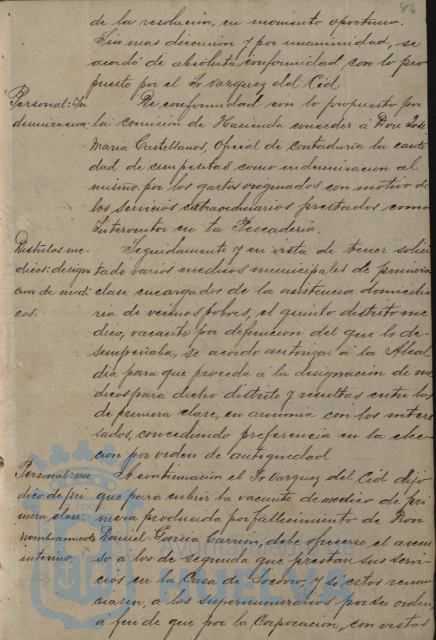 86
de la resolución, en momento oportuno.
Sin mas discusion y por unanimidad, se
acordó de absoluta conformidad con lo pro
puesto por el Sr Vazquez del Cid
Personal: In
demnizacion.
De conformidad con lo propuesto por
la comisión de Hacienda conceder á Don José
María Castellanos, Oficial de contaduría la canti
dad de cien pesetas como indemnizacion al
mismo por los gastos originados con motivo de
los servicios extraordinarios prestados como
Interventor en la Pescadería.
Distritos me
dicos: designa
cion de medi
cos.
Seguidamente y en vista de tener solici
tado varios medicos municipales de primera
clase encargados de la asistencia domicilia
ria de vecinos pobres, el quinto distrito me
dico, vacante por defuncion del que lo de
sempeñaba, se acordo autorizar á la Alcal
dia para que proceda á la designación de me
dicos para dicho distrito y resultas entre los
de primera clase, en armonia con los intere
sados, concediendo preferencia en la elec
cion por orden de antiguedad
Personal: me
dico de pri
mera clase:
nombramiento
interino.
A continuación el Sr Vazquez del Cid dijo
que para cubrir la vacante de medico de pri
mera producida por fallecimiento de Don
Daniel Garcia Carrion, debe ofrecerse el ascen
so á los de segunda que prestan sus servi
cios en la Casa de Socorro, y si estos renun
ciasen, a los supernumerarios por su orden,
á fin de que por la Corporacion, con vistas